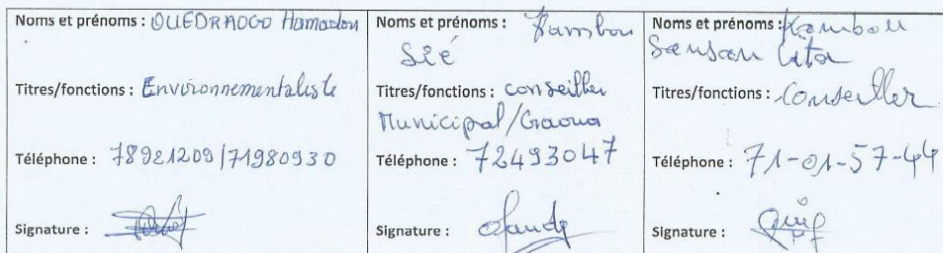 Noms et prénoms : OUEDRAOGO Hamadou
Titres/fonctions : Environnementaliste
Téléphone : 78921209/71980930
Signature :
Noms et prénoms : Kambou
Sié
Titres/fonctions : conseiller
Municipal/Gaoua
Téléphone : 72493047
Signature :
Noms et prénoms : Kambou
Sansan
Titres/fonctions : Conseiller
Téléphone : 71-01-57-44
Signature :